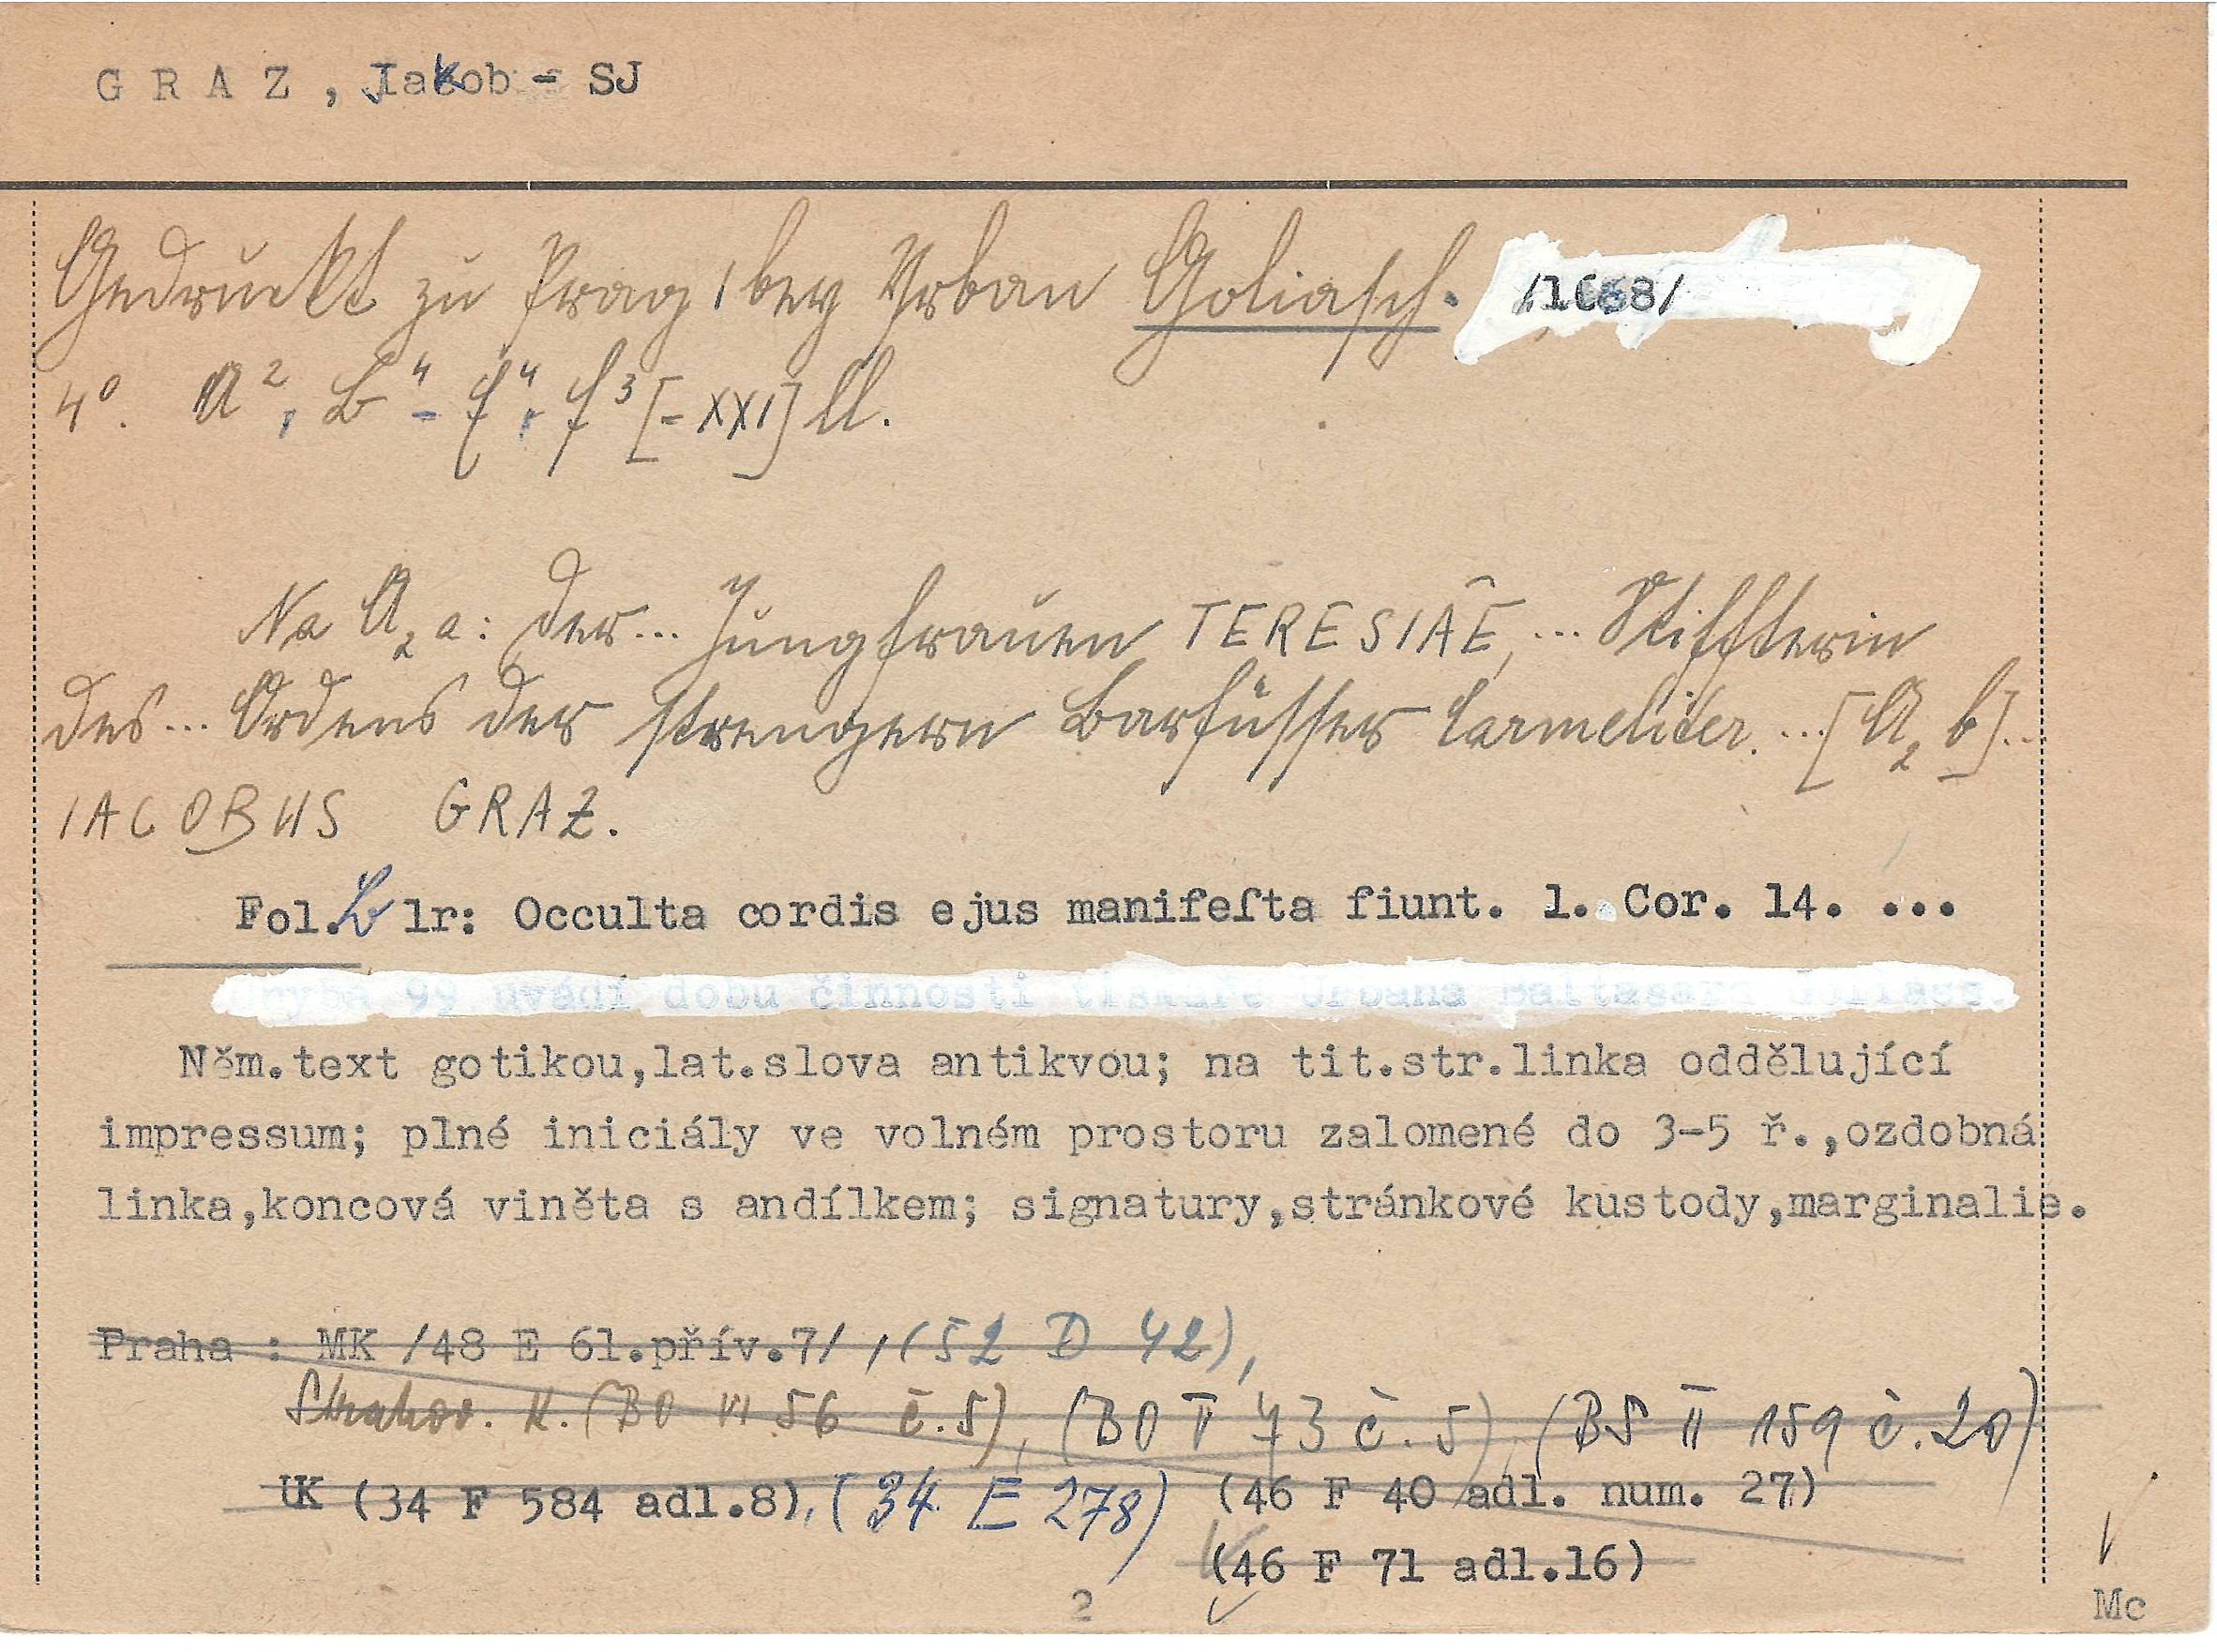 GRAZ, Jakob - SJ
Gedruckt zu Prag / bey Urban Goliasch. /1668/
4° A², B⁴ - E⁴, F³ [= XXI] ll.
Na A₂a: Der... Jungfrauen TERESIÆ, ... Stiffterin
des... Ordens der strengern Barfüsser Carmeliter. ... [A₂b]...
IACOBUS GRAZ.
Fol. B 1r: Occulta cordis ejus manifeſta fiunt. 1. Cor. 14. ...
99 uvádí dobu činnosti tiskaře Urbana Baltasara
Něm.text gotikou,lat.slova antikvou; na tit.str.linka oddělující
impressum; plné iniciály ve volném prostoru zalomené do 3-5 ř.,ozdobná
linka,koncová viněta s andílkem; signatury,stránkové kustody,marginalie.
Praha : MK /48 E 61.přív.7/ , (52 D 42),
Strahov. K. (BO VI 56 č.5), (BO V 43 č.5), (BS II 159 č.20)
UK (34 F 584 adl.8), (34 E 278) (46 F 40 adl. num. 27)
(46 F 71 adl.16)
2
Mc